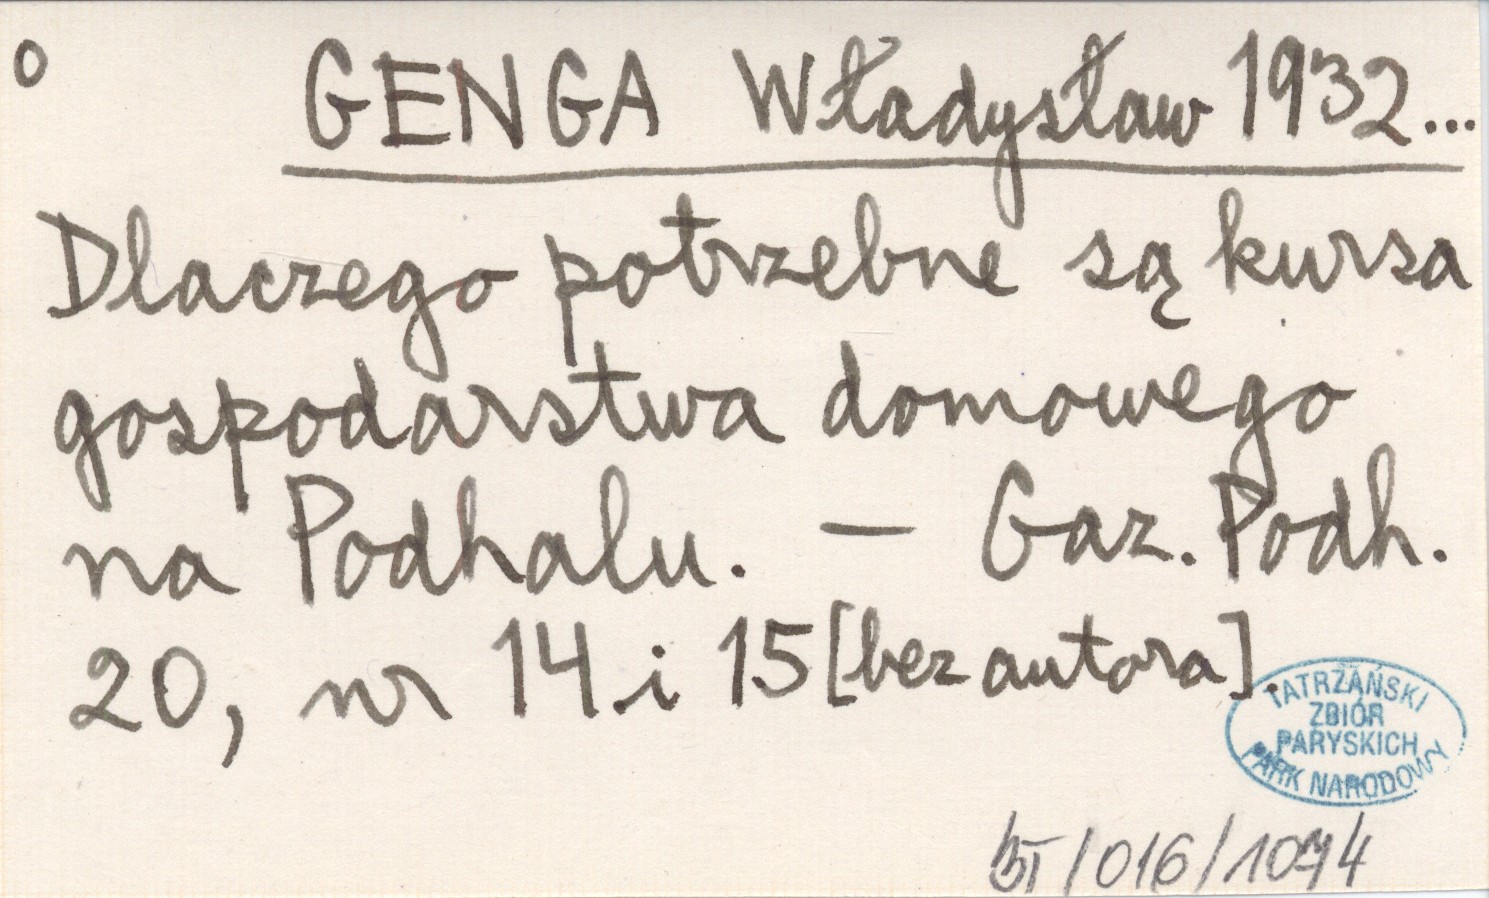 o GENGA Władysław 1932...
Dlaczego potrzebne są kursa
gospodarstwa domowego
na Podhalu. — Gaz. Podh.
20, nr 14 i 15 [bez autora].
TATRZAŃSKI
ZBIÓR
PARYSKICH
PARK NARODOWY
/016/